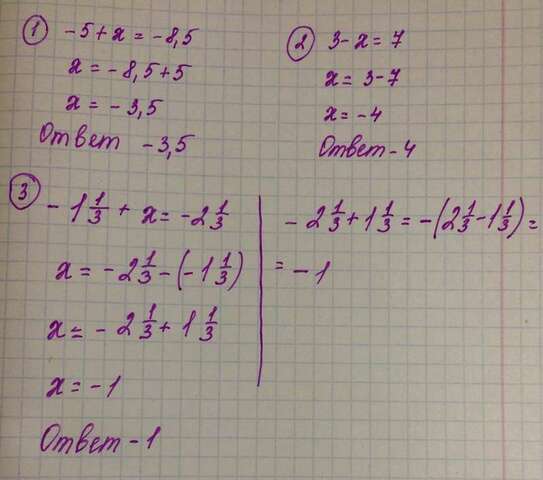 ① -5+x=-8,5
x=-8,5+5
x=-3,5
Ответ -3,5
② 3-x=7
x=3-7
x=-4
Ответ -4
③ -1 1/3 + x = -2 1/3
x = -2 1/3 - (-1 1/3)
x = -2 1/3 + 1 1/3
x = -1
Ответ -1
-2 1/3 + 1 1/3 = -(2 1/3 - 1 1/3) =
= -1